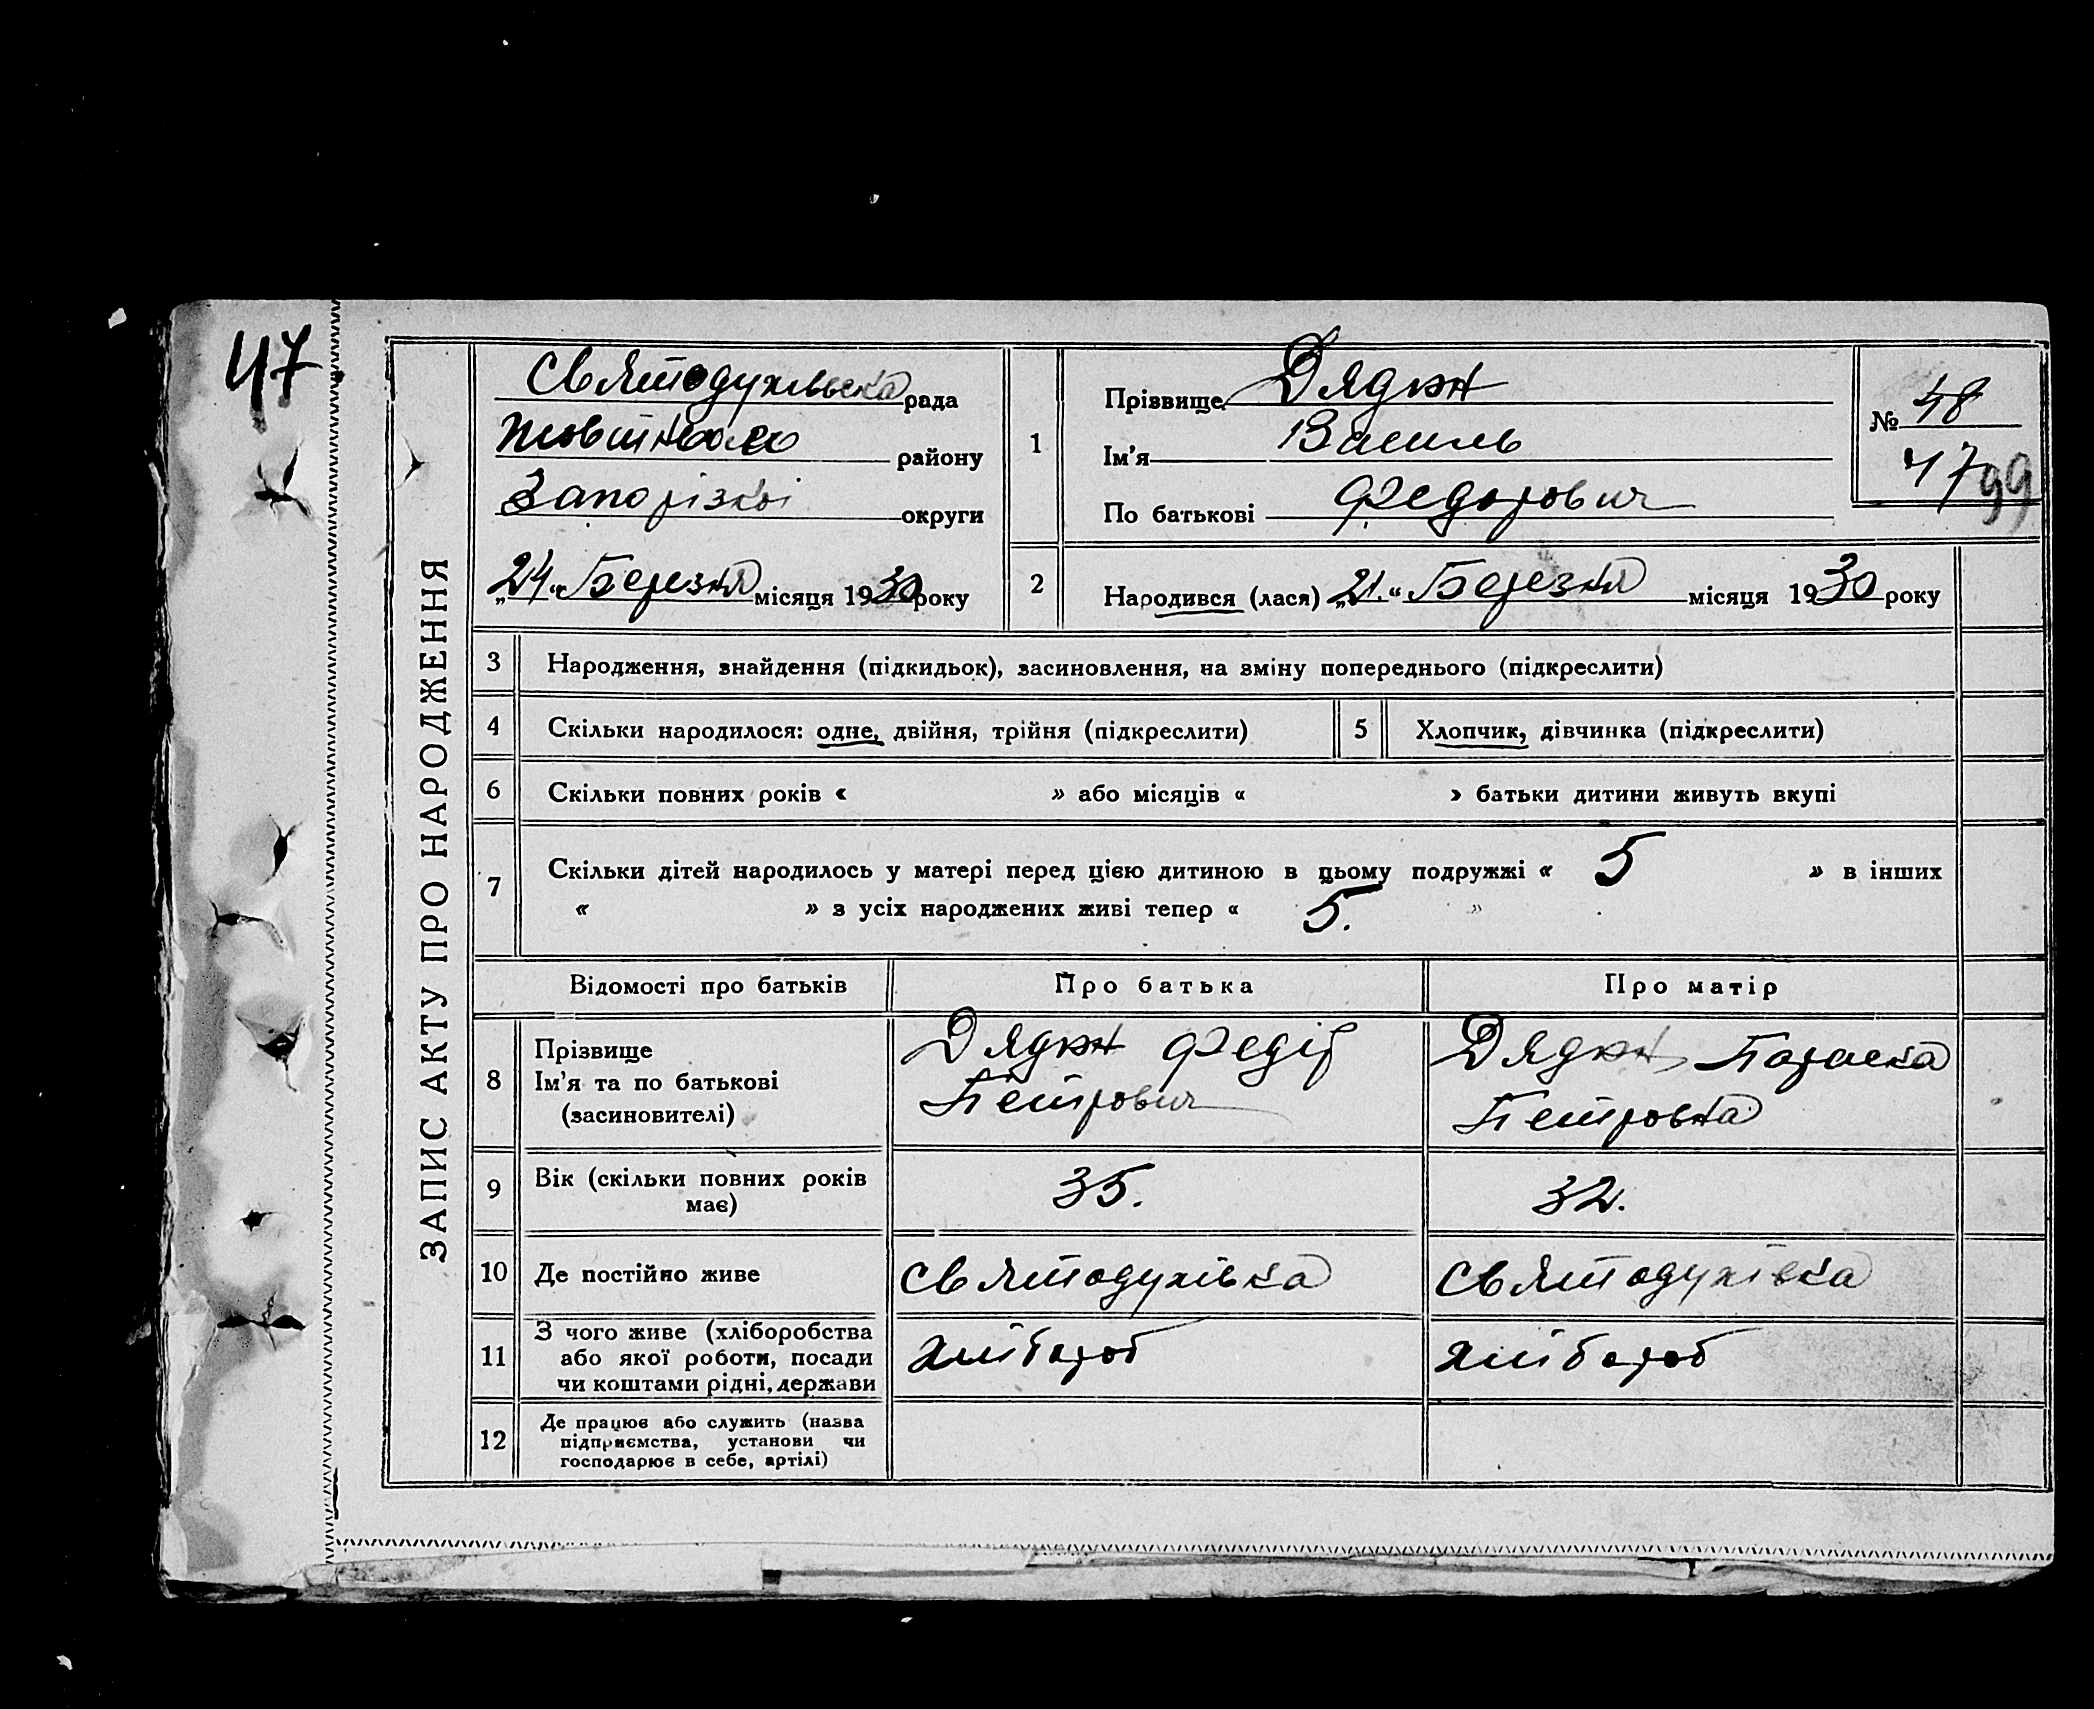 47
ЗАПИС АКТУ ПРО НАРОДЖЕННЯ
Святодухівська рада
району
Запорізкої округи
„24“ Березня місяця 1930 року
1
Прізвище Дядюн
Ім'я Василь
По батькові Федорович
№ 48
47 99
2
Народився (лася) „21.“ Березня місяця 1930 року
3 Народження, знайдення (підкидьок), засиновлення, на зміну попереднього (підкреслити)
4 Скільки народилося: одне, двійня, трійня (підкреслити)
5 Хлопчик, дівчинка (підкреслити)
6 Скільки повних років « » або місяців « » батьки дитини живуть вкупі
7 Скільки дітей народилось у матері перед цією дитиною в цьому подружжі « 5 » в інших
« » з усіх народжених живі тепер « 5. »
Відомості про батьків Про батька Про матір
8 Прізвище
Ім'я та по батькові
(засиновителі)
Дядюн Федір
Петрович
Дядюн Параска
Петровна
9 Вік (скільки повних років
має)
35. 32.
10 Де постійно живе Святодухівка Святодухівка
11 З чого живе (хліборобства
або якої роботи, посади
чи коштами рідні, держави
хлібороб хлібороб
12 Де працює або служить (назва
підприємства, установи чи
господарює в себе, артілі)